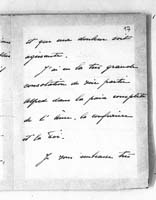 17
et que ma douleur soit
agissante.
J'ai eu la très grande
consolation de voir partir
Alfred dans la paix complète
de l'âme, la confiance
et la Foi.
Je vous embrasse très